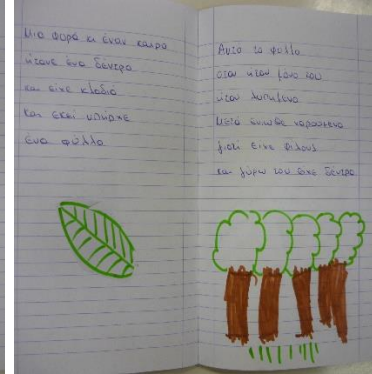 Μια φορά κι ένας καιρό
ήτανε ένα δέντρο
και είχε κλαδιά
και εκεί υπήρχε
ένα φύλλο
Αυτό το φύλλο
όταν ήταν μόνο του
ήταν λυπημένο
Μετά ένιωθε χαρούμενο
γιατί είχε φίλους
και γύρω του είχε δέντρα